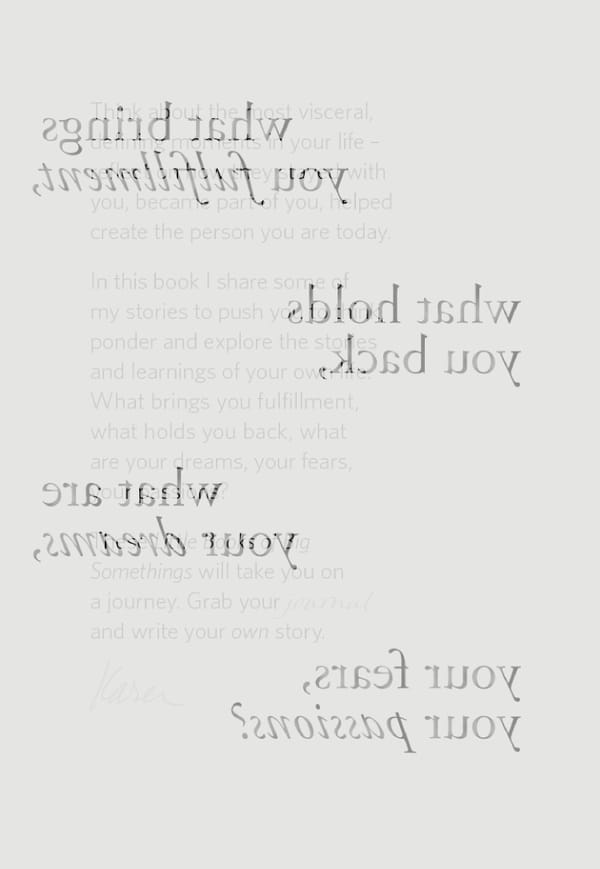 Think about the most visceral,
defining moments in your life –
reflect on how they stayed with
you, became part of you, helped
create the person you are today.
In this book I share some of
my stories to push you to think,
ponder and explore the stories
and learnings of your own life.
What brings you fulfillment,
what holds you back, what
are your dreams, your fears,
your passions?
These Little Books of Big
Somethings will take you on
a journey. Grab your journal
and write your own story.
Karen
what brings
you fulfillment,
what holds
you back,
what are
your dreams,
your fears,
your passions?